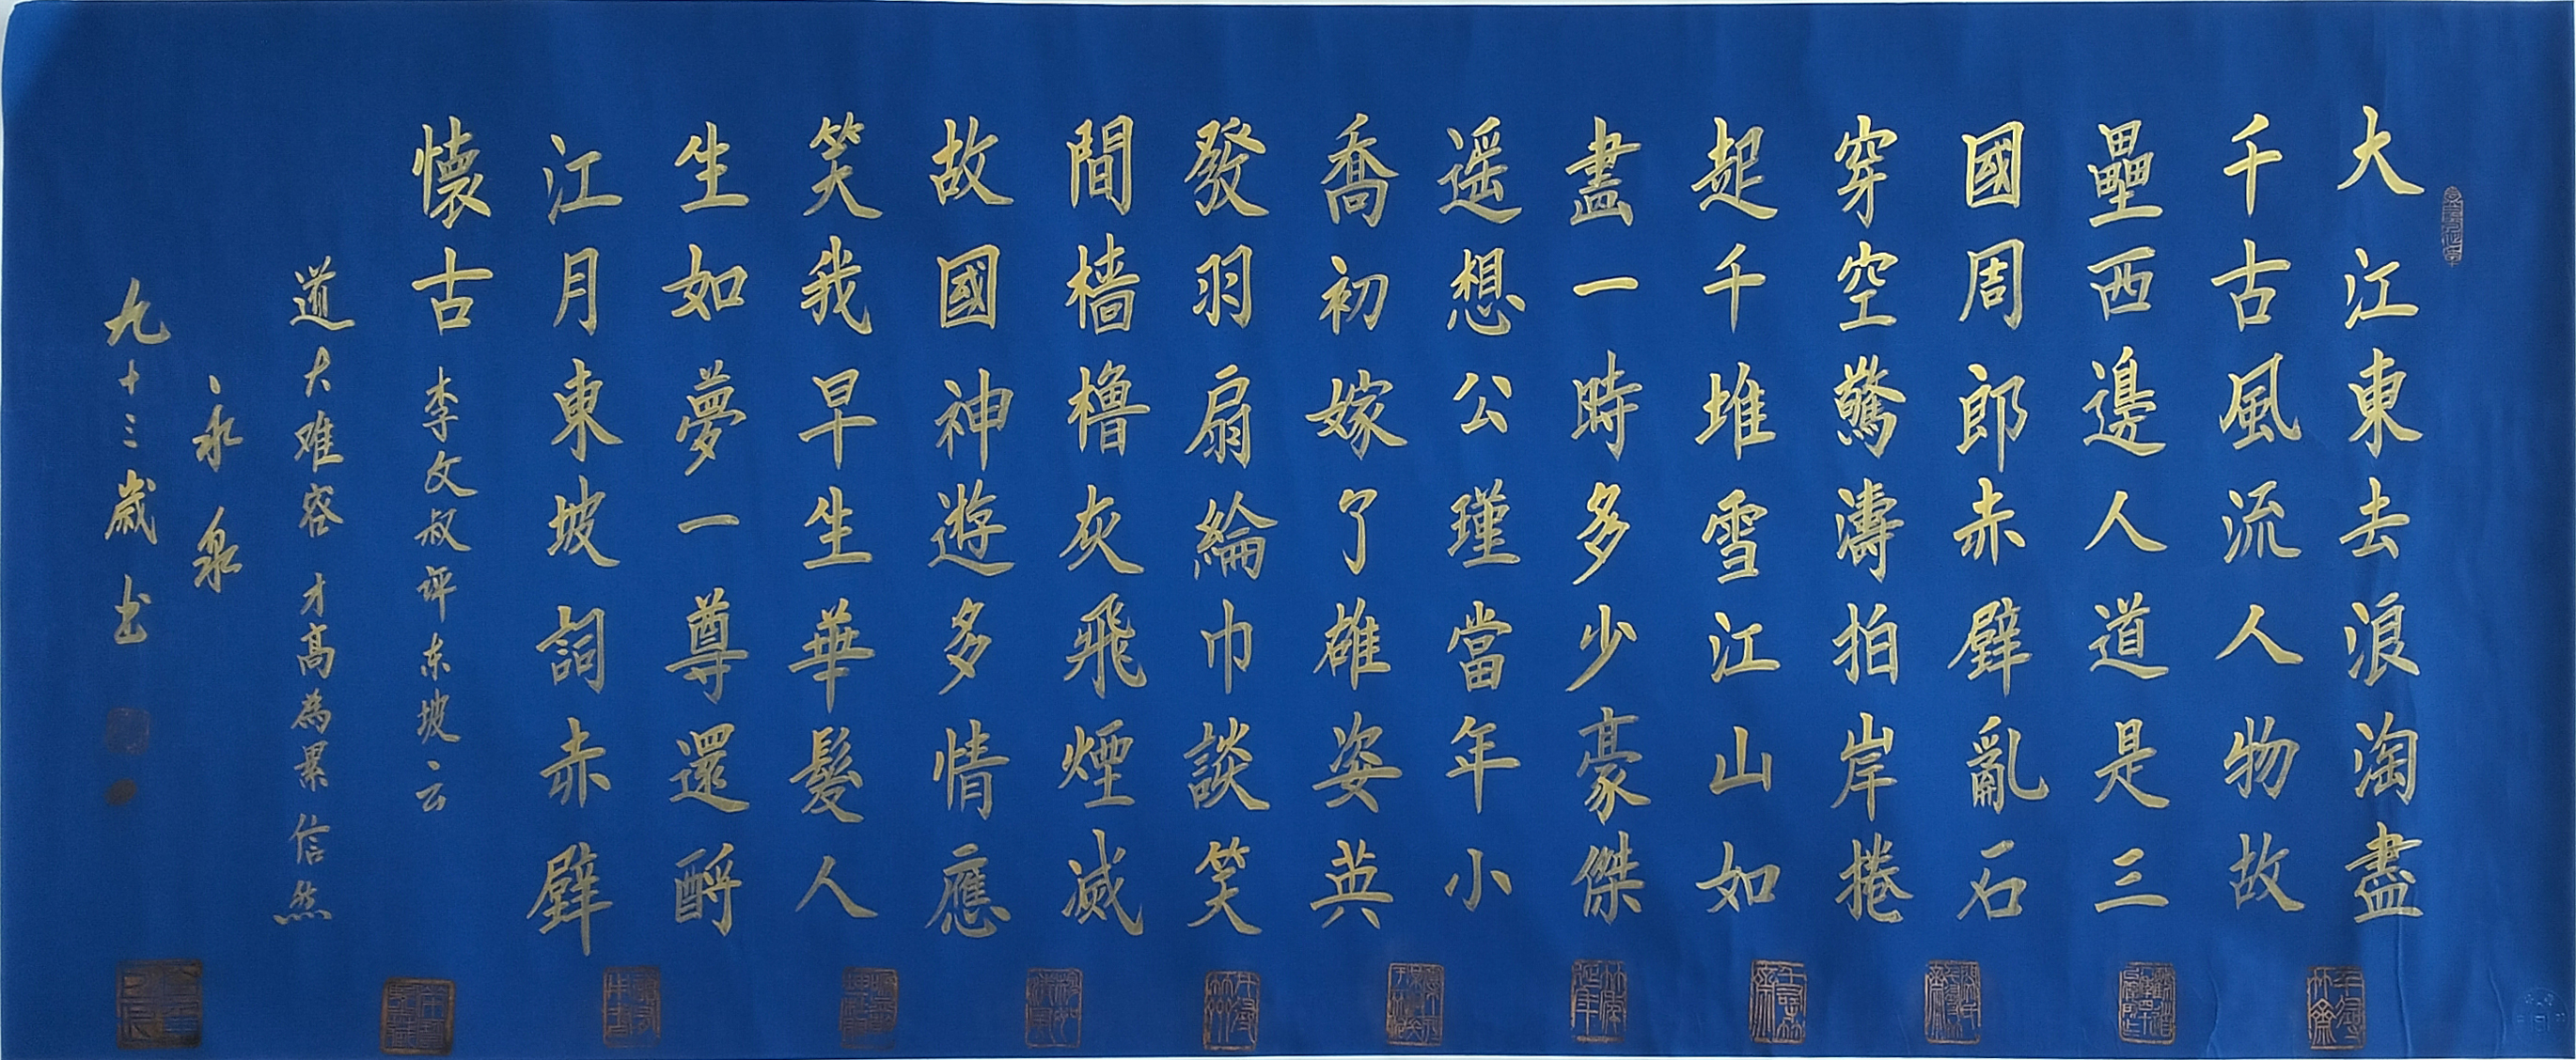 大江東去浪淘盡
千古風流人物故
壘西邊人道是三
國周郎赤壁亂石
穿空驚濤拍岸捲
起千堆雪江山如
畫一時多少豪傑
遥想公瑾當年小
喬初嫁了雄姿英
發羽扇綸巾談笑
間檣櫓灰飛煙滅
故國神遊多情應
笑我早生華髮人
生如夢一尊還酹
江月東坡詞赤壁
懷古李文叔评东坡云
道大难容才高為累信然
永泉
九十三歲书